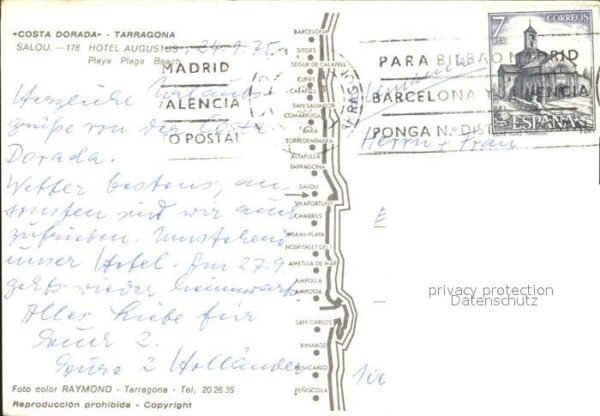 «COSTA DORADA» - TARRAGONA
SALOU. — 178 HOTEL AUGUSTUS
Playa Plage Beach
24.9.75
Herzliche Urlaubs-
grüße von der Costa
Dorada.
Wetter bestens, an-
sonsten sind wir auch
zufrieden. Umstehend
unser Hotel. Am 27.9
geht's wieder heimwärts.
Alles Liebe für
Euch 2.
Eure 2 Holländer
Foto color RAYMOND - Tarragona - Tel. 20 26 35
Reproducción prohibida - Copyright
MADRID
VALENCIA
O POSTAL
BARCELONA
SITGES
SEGUR DE CALAFELL
CUNIT
CALAFELL
SAN SALVADOR
COMARRUGA
BARA
TORREDEMBARRA
ALTAFULLA
TARRAGONA
SALOU
VILAFORTUNY
CAMBRILS
MIAMI-PLAYA
HOSPITALET DEL I.
AMETLLA DE MAR
AMPOLLA
AMPOSTA
SAN CARLOS
VINAROZ
BENICARLO
PEÑISCOLA
7
PTAS
CORREOS
ESPAÑA
PARA BILBAO MADRID
BARCELONA Y VALENCIA
PONGA N.º DIST
Herrn + Frau
privacy protection
Datenschutz